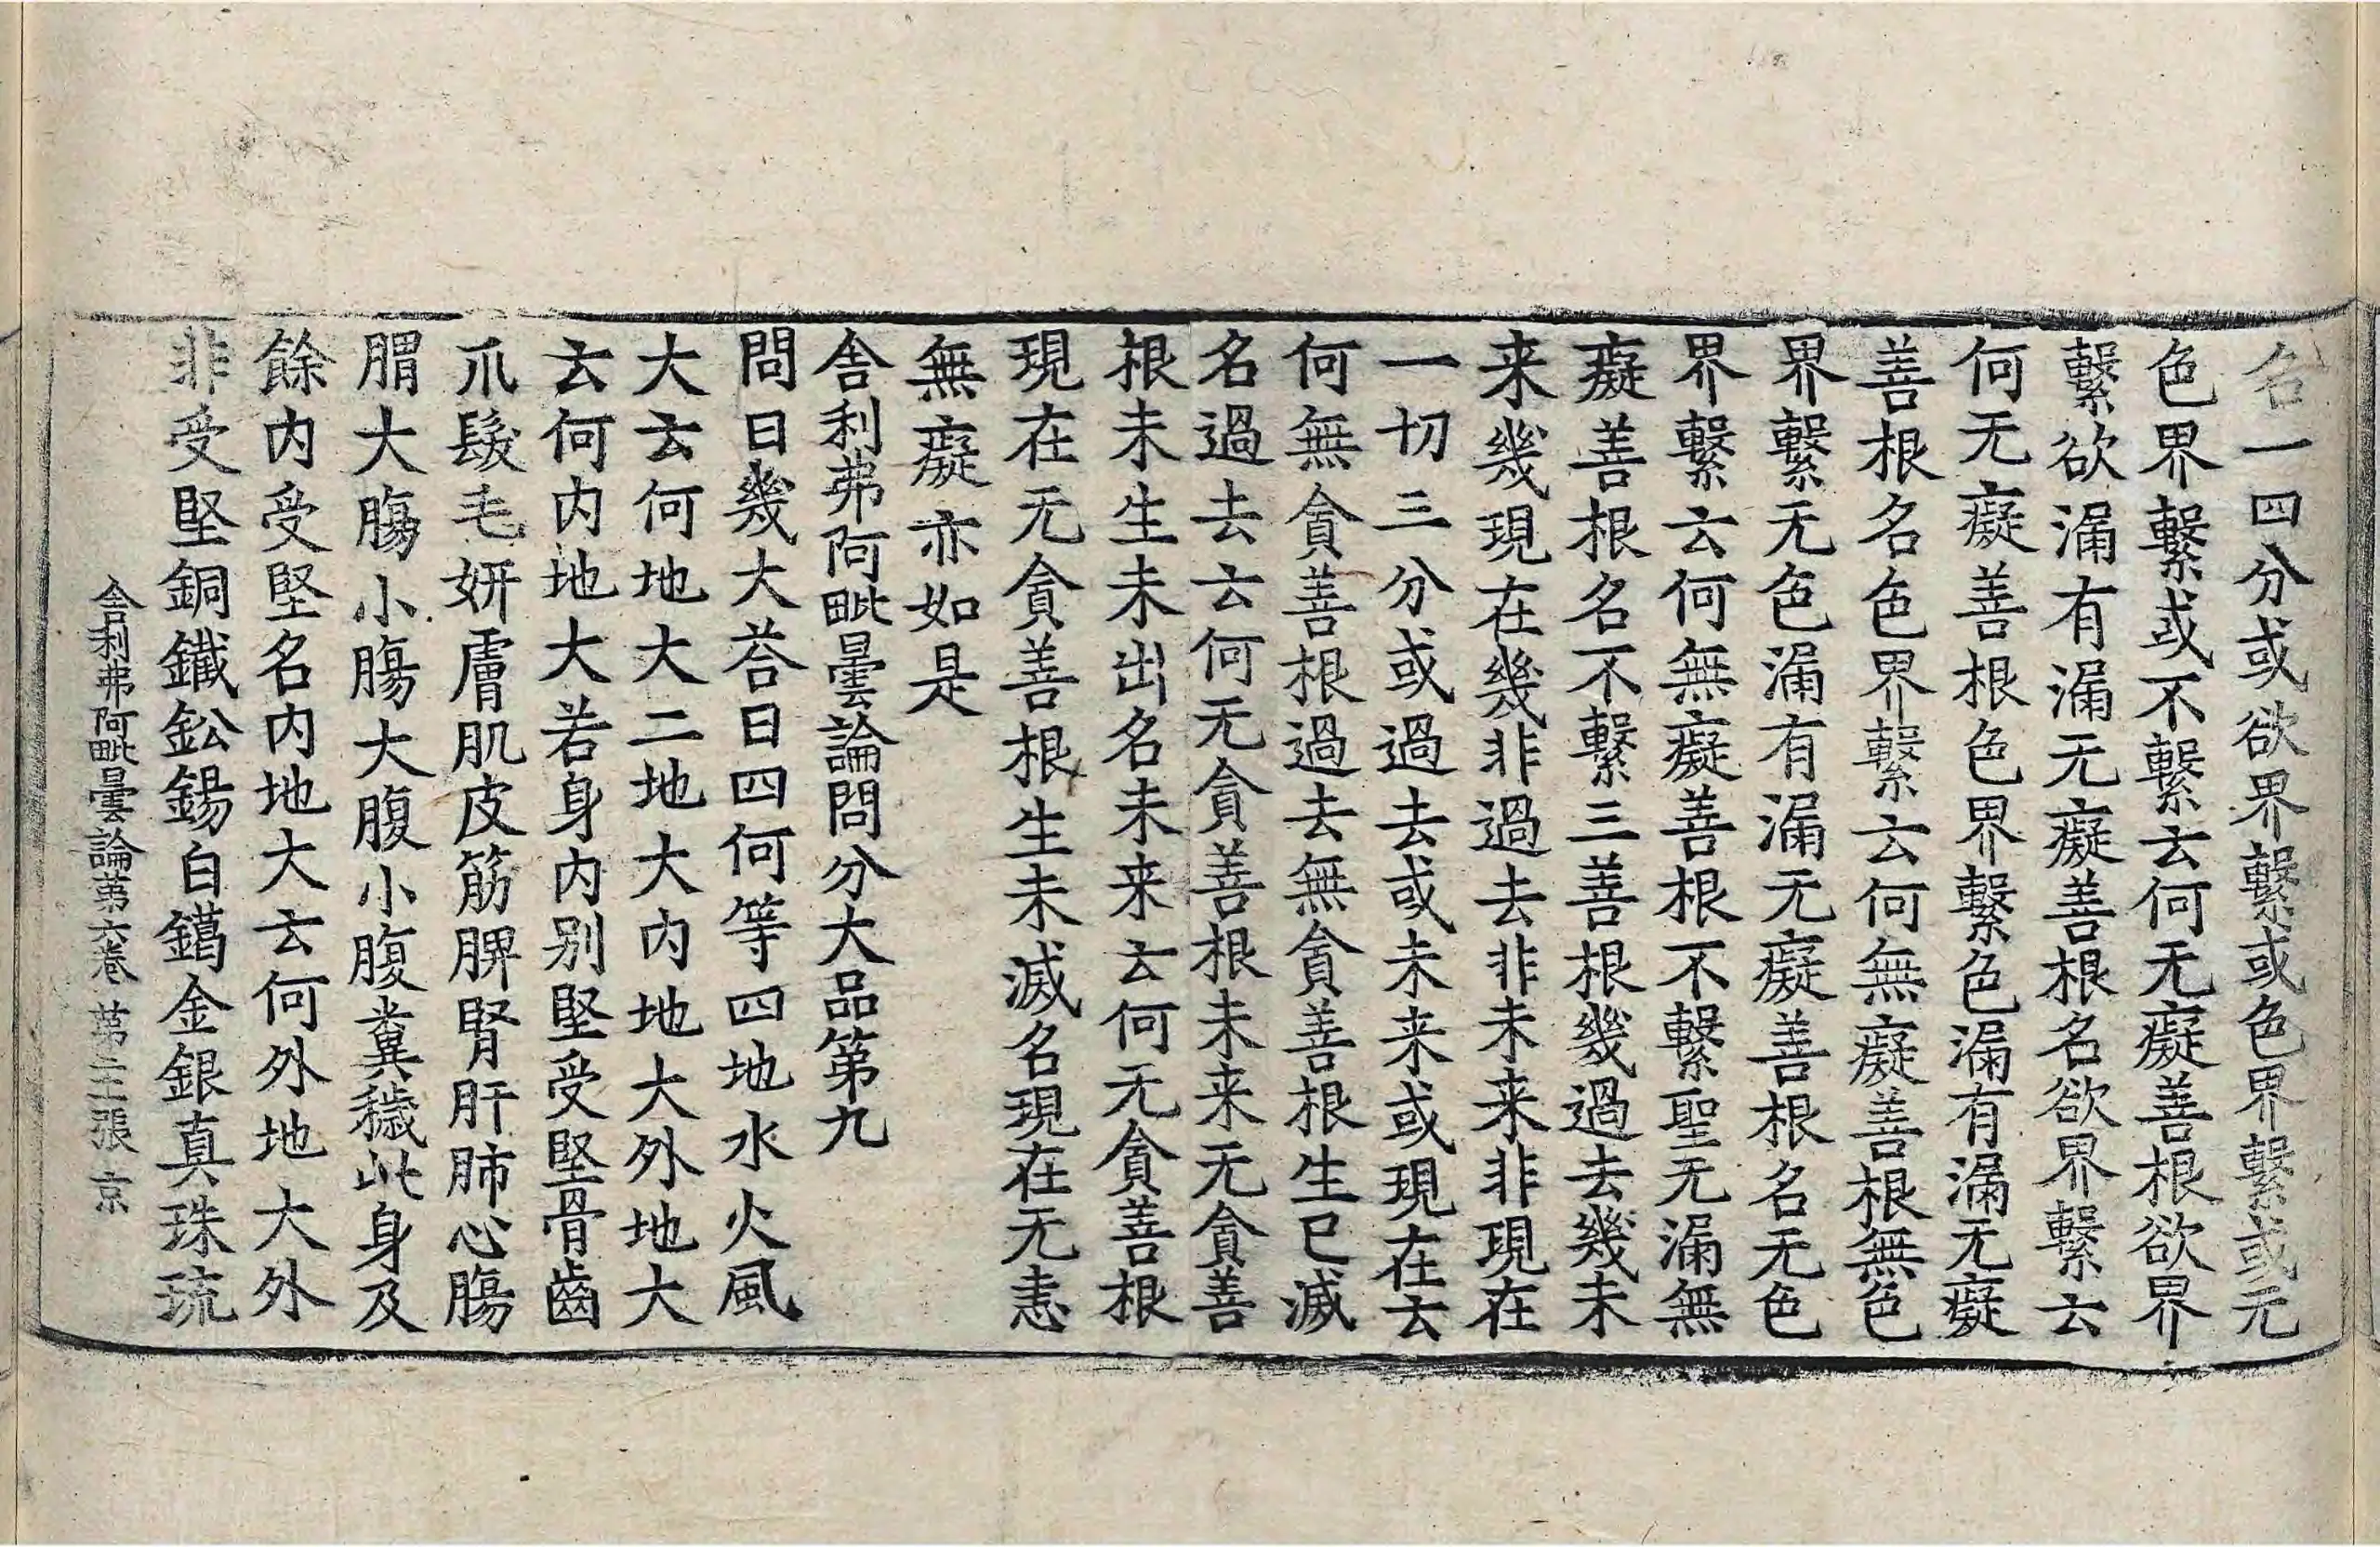 名一四分或欲界繫或色界繫或无
色界繫或不繫云何无癡善根欲界
繫欲漏有漏无癡善根名欲界繫云
何无癡善根色界繫色漏有漏无癡
善根名色界繫云何無癡善根無色
界繫无色漏有漏无癡善根名无色
界繫云何無癡善根不繫聖无漏無
癡善根名不繫三善根幾過去幾未
来幾現在幾非過去非未来非現在
一切三分或過去或未来或現在云
何無貪善根過去無貪善根生已滅
名過去云何无貪善根未来无貪善
根未生未出名未来云何无貪善根
現在无貪善根生未滅名現在无恚
無癡亦如是
舎利弗阿毗曇論問分大品第九
問曰幾大荅曰四何等四地水火風
大云何地大二地大内地大外地大
云何内地大若身内别堅受堅骨齒
爪髮毛妍膚肌皮筋脾腎肝肺心膓
胃大膓小膓大腹小腹糞穢此身及
餘内受堅名内地大云何外地大外
非受堅銅鐵鈆錫白鑞金銀真珠琉
舎利弗阿毗曇論第六卷 第二十張 京